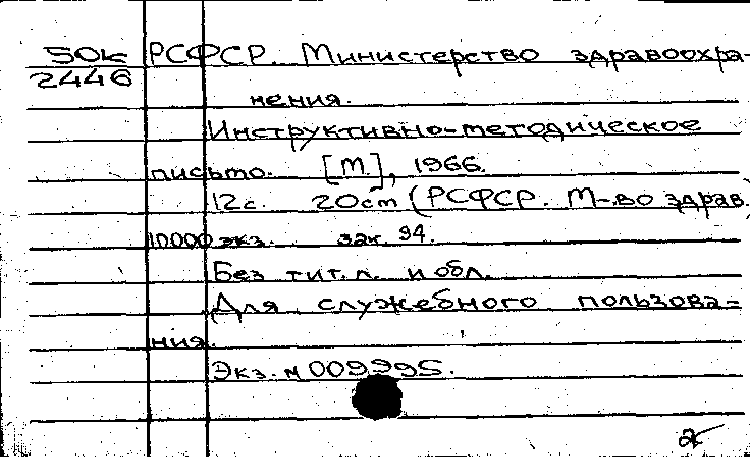 50к РСФСР. Министерство здравоохра-
2446
нения.
Инструктивно-методическое
письмо. [М.], 1966.
12 с. 20см (РСФСР. М-во здрав.
10000 экз. зак. 94.
Без тит. л. и обл.
Для служебного пользова=
ния.
Экз. N 009995.